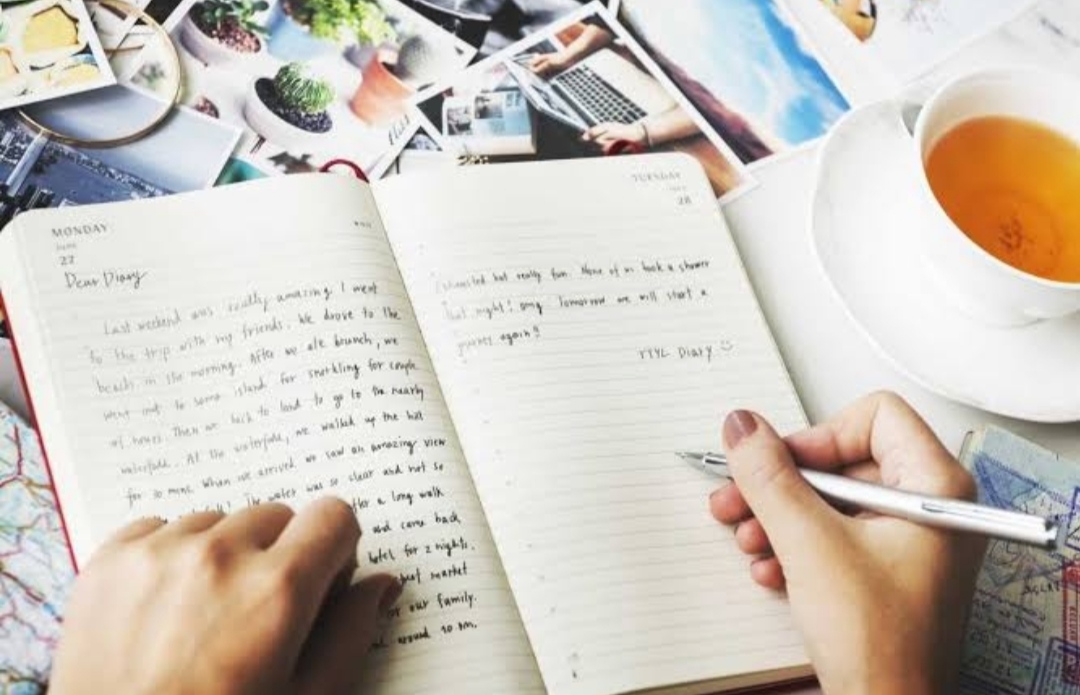 MONDAY
JUNE
27
Dear Diary
Last weekend was really amazing I went
to the trip with my friends. We drove to the
beach in the morning. After we ate brunch, we
went out to some island for snorkling for couple
of hours. Then we back to land to go to the nearby
waterfall. At the waterfall, we walked up the hill
for 30 mins. When we arrived we saw an amazing view
The water was so clear and not so
after a long walk
and came back
hotel for 2 nights.
market
for our family.
around 10 pm.
TUESDAY
28
Exhausted but really fun. None of us took a shower
that night! omg Tomorrow we will start a
journey again!!
TTYL Diary